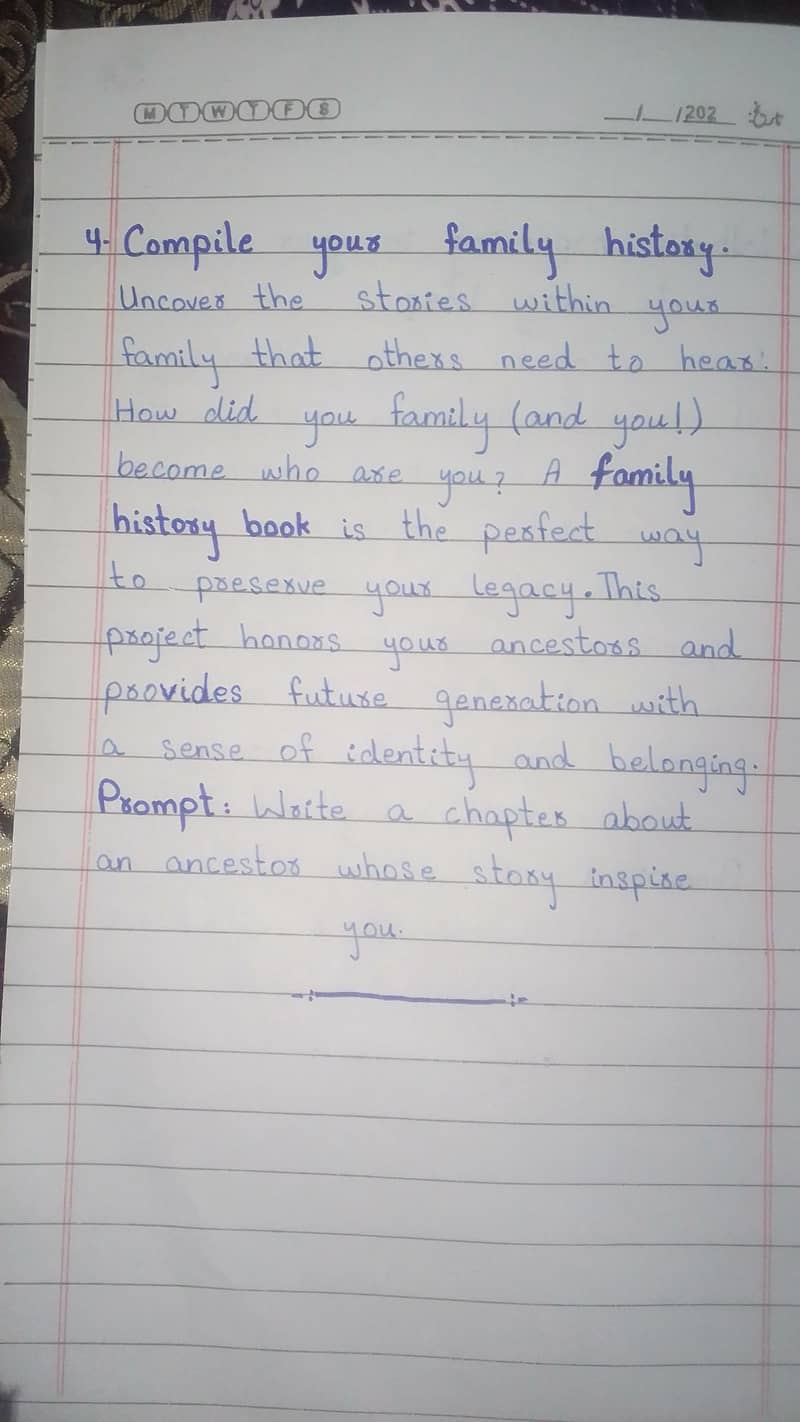 M T W T F S
__/__/202__
4. Compile your family history.
Uncover the stories within your
family that others need to hear.
How did you family (and you!)
become who are you? A family
history book is the perfect way
to preserve your legacy. This
project honors your ancestors and
provides future generation with
a sense of identity and belonging.
Prompt: Write a chapter about
an ancestor whose story inspire
you.